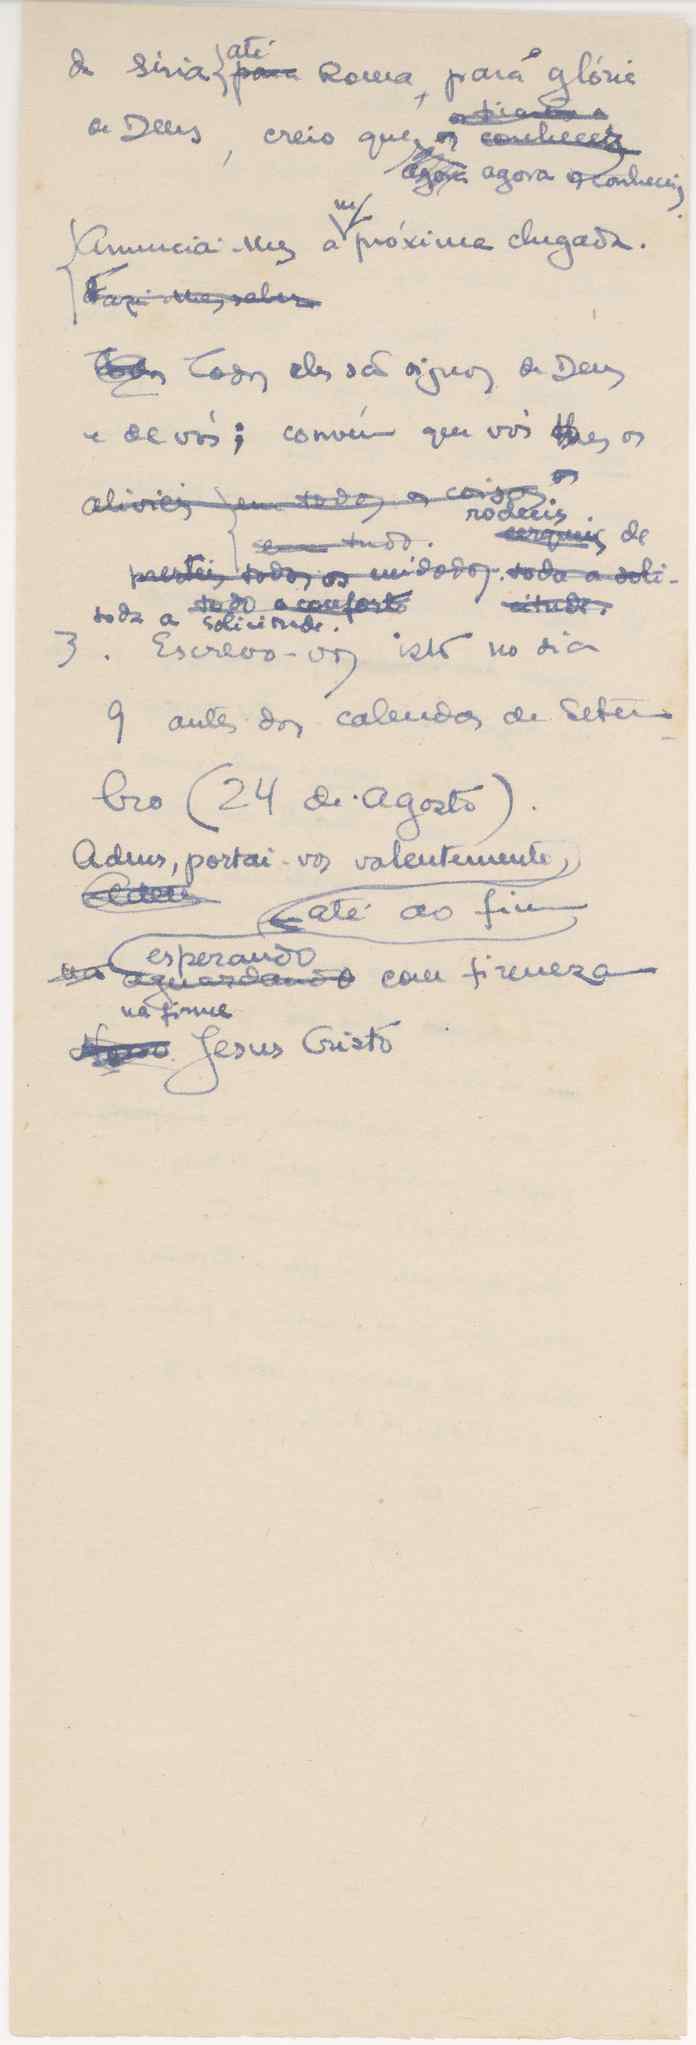 até
da Síria para Roma, para glória
de Deus, creio que os conheceis
agora agora os conheceis.
Anunciai-lhes a m/ próxima chegada.
Fazei-lhes saber
Todos Todos eles são dignos de Deus
e de vós; convém que vós lhes os
os
alivieis em todas as coisas
rodeeis
em tudo. cerqueis de
presteis todos os cuidados. toda a soli-
toda a todo o conforto citude.
solicitude.
3. Escrevo-vos isto no dia
9 antes das calendas de Setem-
bro (24 de Agosto).
Adeus, portai-vos valentemente,
Adeus
até ao fim
esperando
na aguardando com firmeza
na firme
Nosso Jesus Cristo